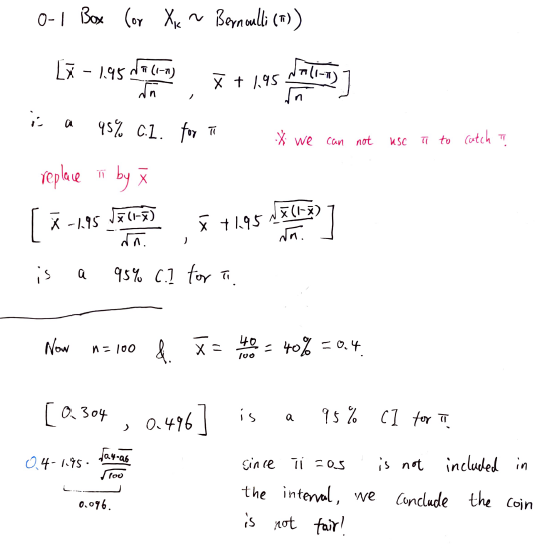 0-1 Box (or Xₖ ~ Bernoulli(π)
[x̄ - 1.95 √π(1-π)/√n , x̄ + 1.95 √π(1-π)/√n]
is a 95% C.I. for π
※ we can not use π to catch π.
replace π by x̄
[x̄ - 1.95 √x̄(1-x̄)/√n. , x̄ + 1.95 √x̄(1-x̄)/√n.]
is a 95% C.I for π.
Now n=100 & x̄ = 40/100 = 40% = 0.4.
[0.304 , 0.496] is a 95% CI for π.
0.4 - 1.95 · √0.4·0.6/√100
0.096.
since π = 0.5 is not included in
the interval, we conclude the coin
is not fair!